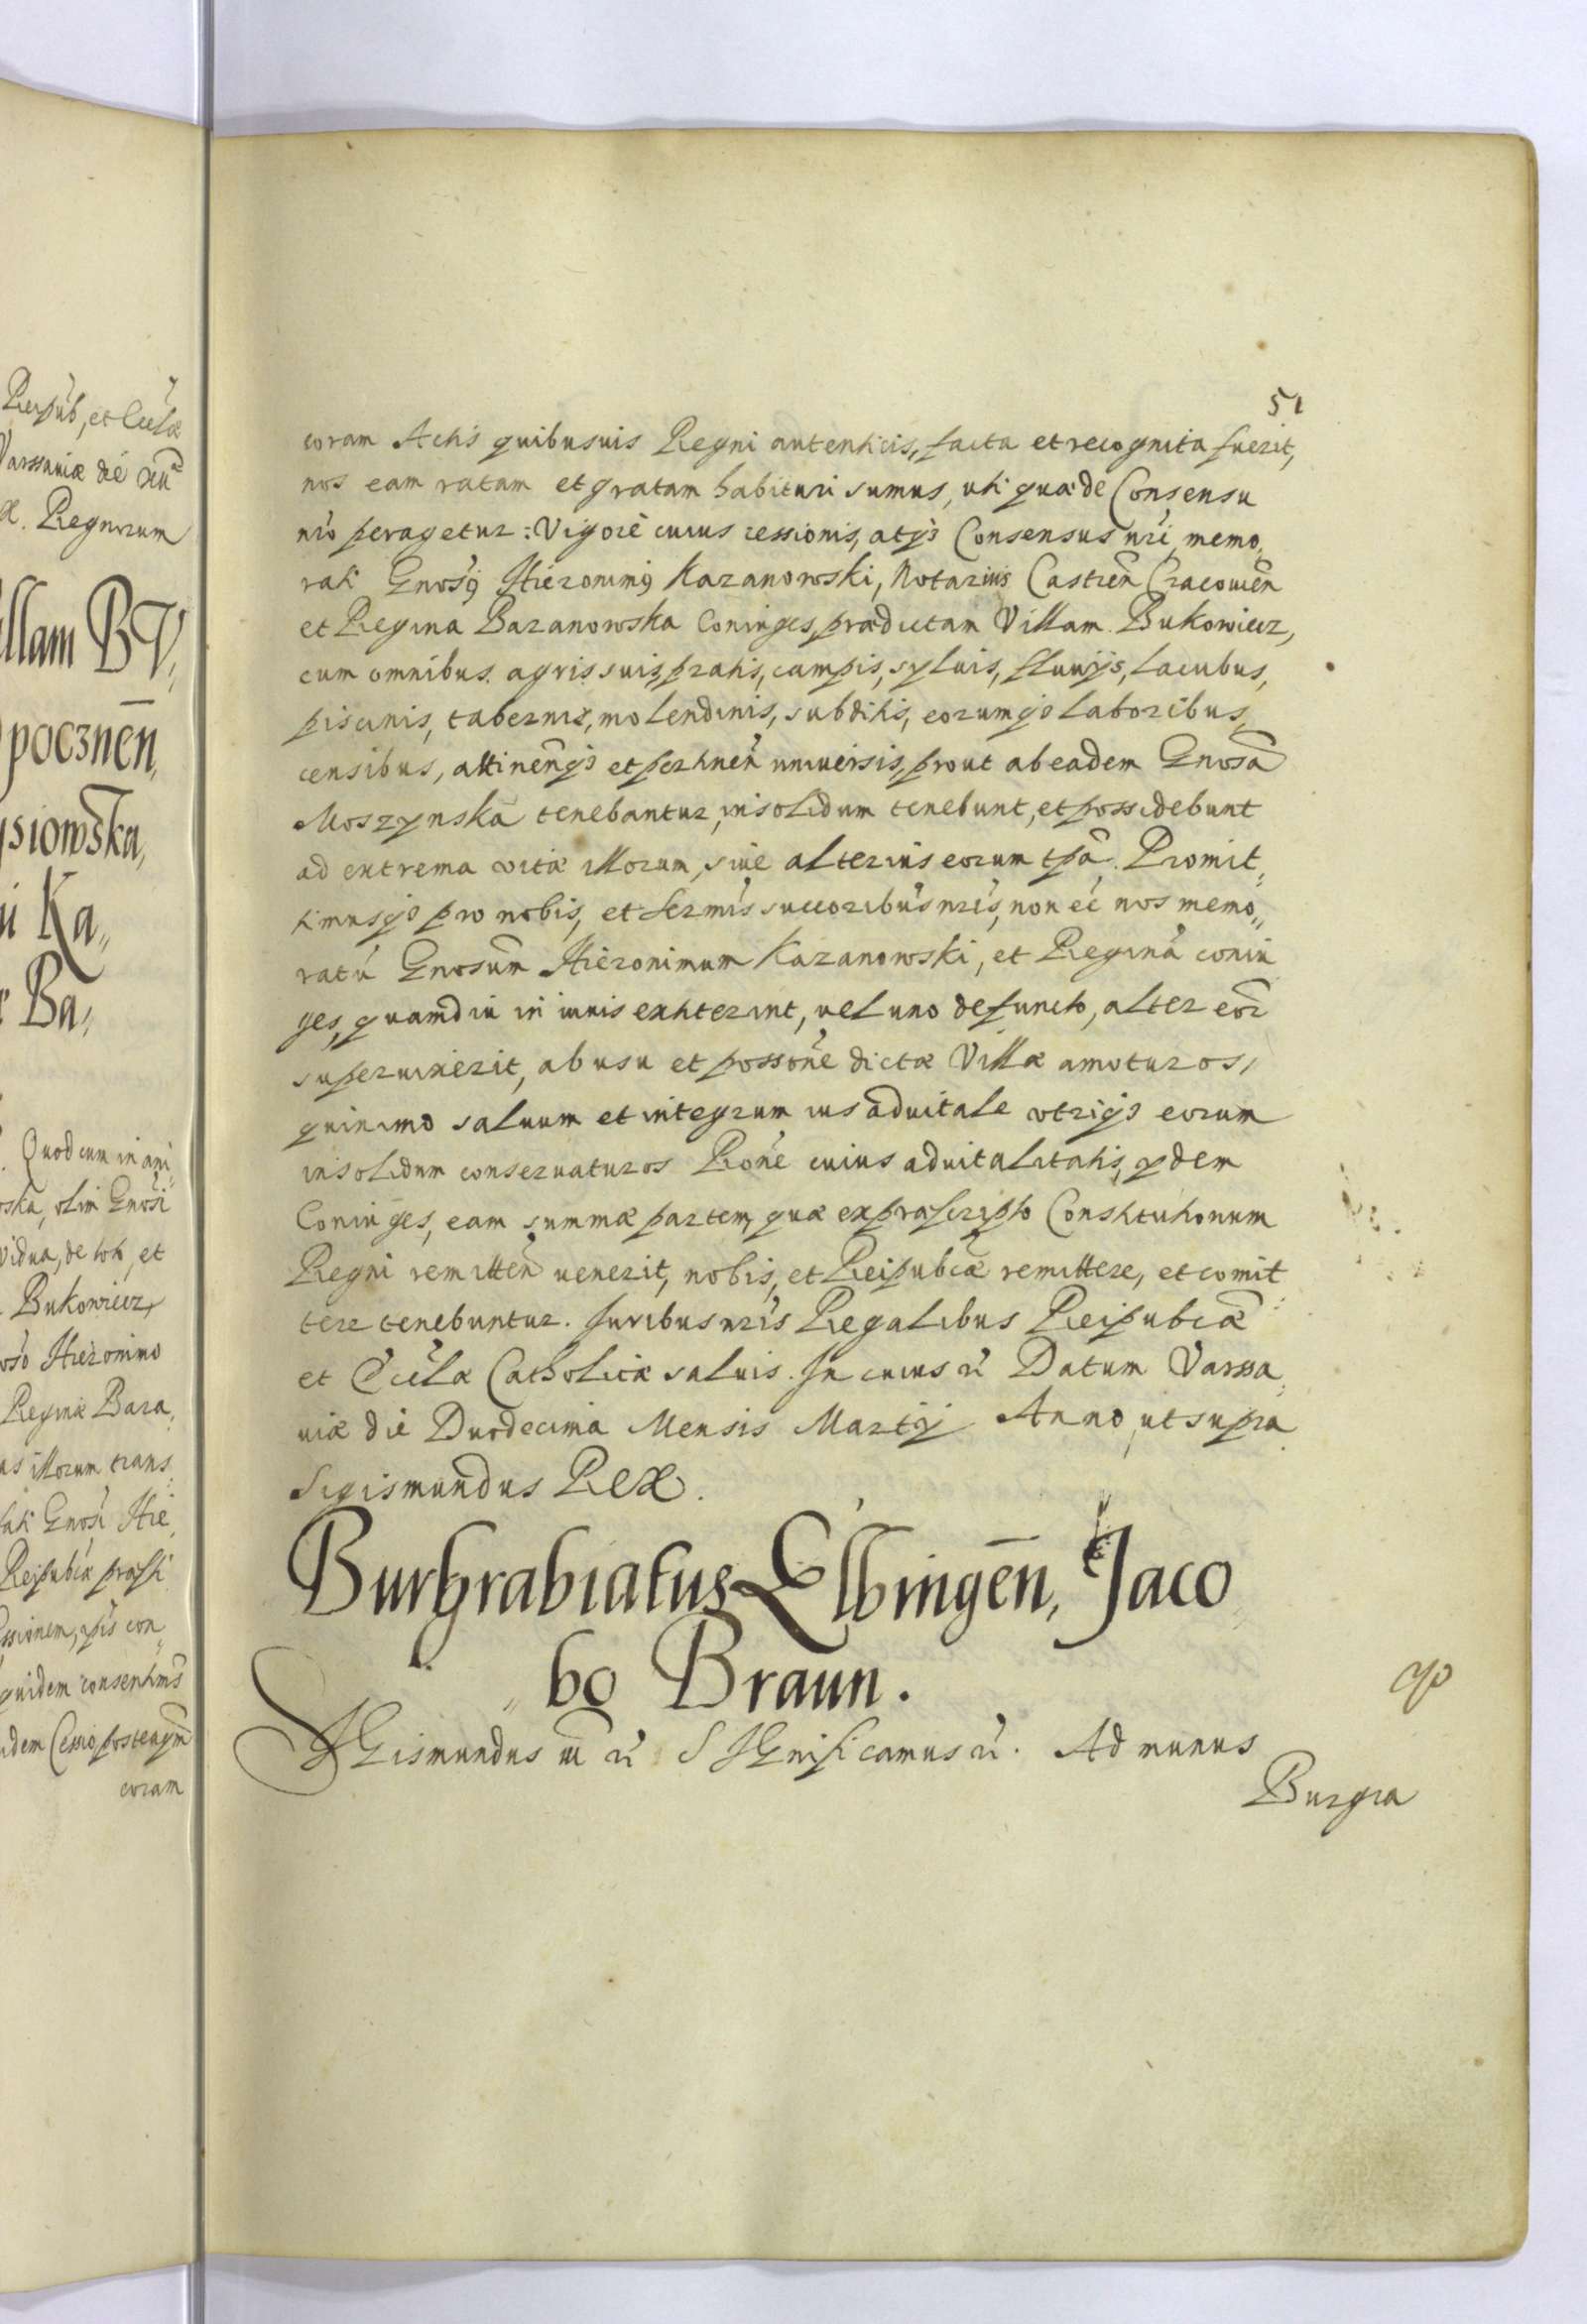 Reipub, et Eccla
Varssauiæ die xu
Regnorum
illam BV,
poczneń,
ysiowska,
i Ka,,
Ba,
Quod cum in ari
ska, olim Gnosi
vidua, de toti, et
Bukowiecz,
oso Hieronimo
Reginæ Baza,
as illorum trans
fati Gnosi Hie
Reipubcæ præsti
essionem, ipīs con
quidem consentim9
idem Cessio, postenqm
coram
51
coram Actis quibusuis Regni autenticis, facta et recognita fuerit,
nos eam ratam et gratam habituri sumus, uti quæ de Consensu
nrō peragetur: Vigore cuius cessionis, atq3 Consensus nrī, memo,
rati Gnosq Hieronimq Kazanowski, Notarius Castren Cracouien
et Regina Bazanowska Coniuges, prædictam Villam Bukowiecz,
cum omnibus agris suis, pratis, campis, syluis, fluuijs, lacubus,
piscinis, tabernis, molendinis, subditis, eorumq3 laboribus,
censibus, attinenq3 et pertinen uniuersis, prout ab eadem Gnosa
Moszynska tenebantur, in solidum tenebunt, et possidebunt
ad extrema vitæ illorum, siue alterius eorum tpa. Promit,
timusq3 pro nobis, et Sermis succoribus nris, non eē nos memo,,
ratū Gnosum Hieronimum Kazanowski, et Reginā coniu
ges, quamdiu in viuis extiterint, uel uno defuncto, alter eor
superuixerit, ab usu et possōne dictæ Villæ amoturos,
quinimo saluum et integrum ius aduitale vtriq3 eorum
in solidum conseruaturos Rōne cuius aduitalitatis, ydem
Coniuges, eam summæ partem, quæ ex præscripto Constitutionum
Regni remitten uenerit, nobis, et Reipubcæ remittere, et comit
tere tenebuntur. Juribus nris Regalibus Reipubcæ
et Eccłæ Catholicæ saluis. In cuius rī Datum Varssa,
uiæ die Duodecima Mensis Martij Anno, ut supra
Sigismundus Rex.
Burgrabiatus Elbingen, Jaco
,, bo Braun.
SIGismundus III rī SIGnificamus rī. Ad munus
Burgra